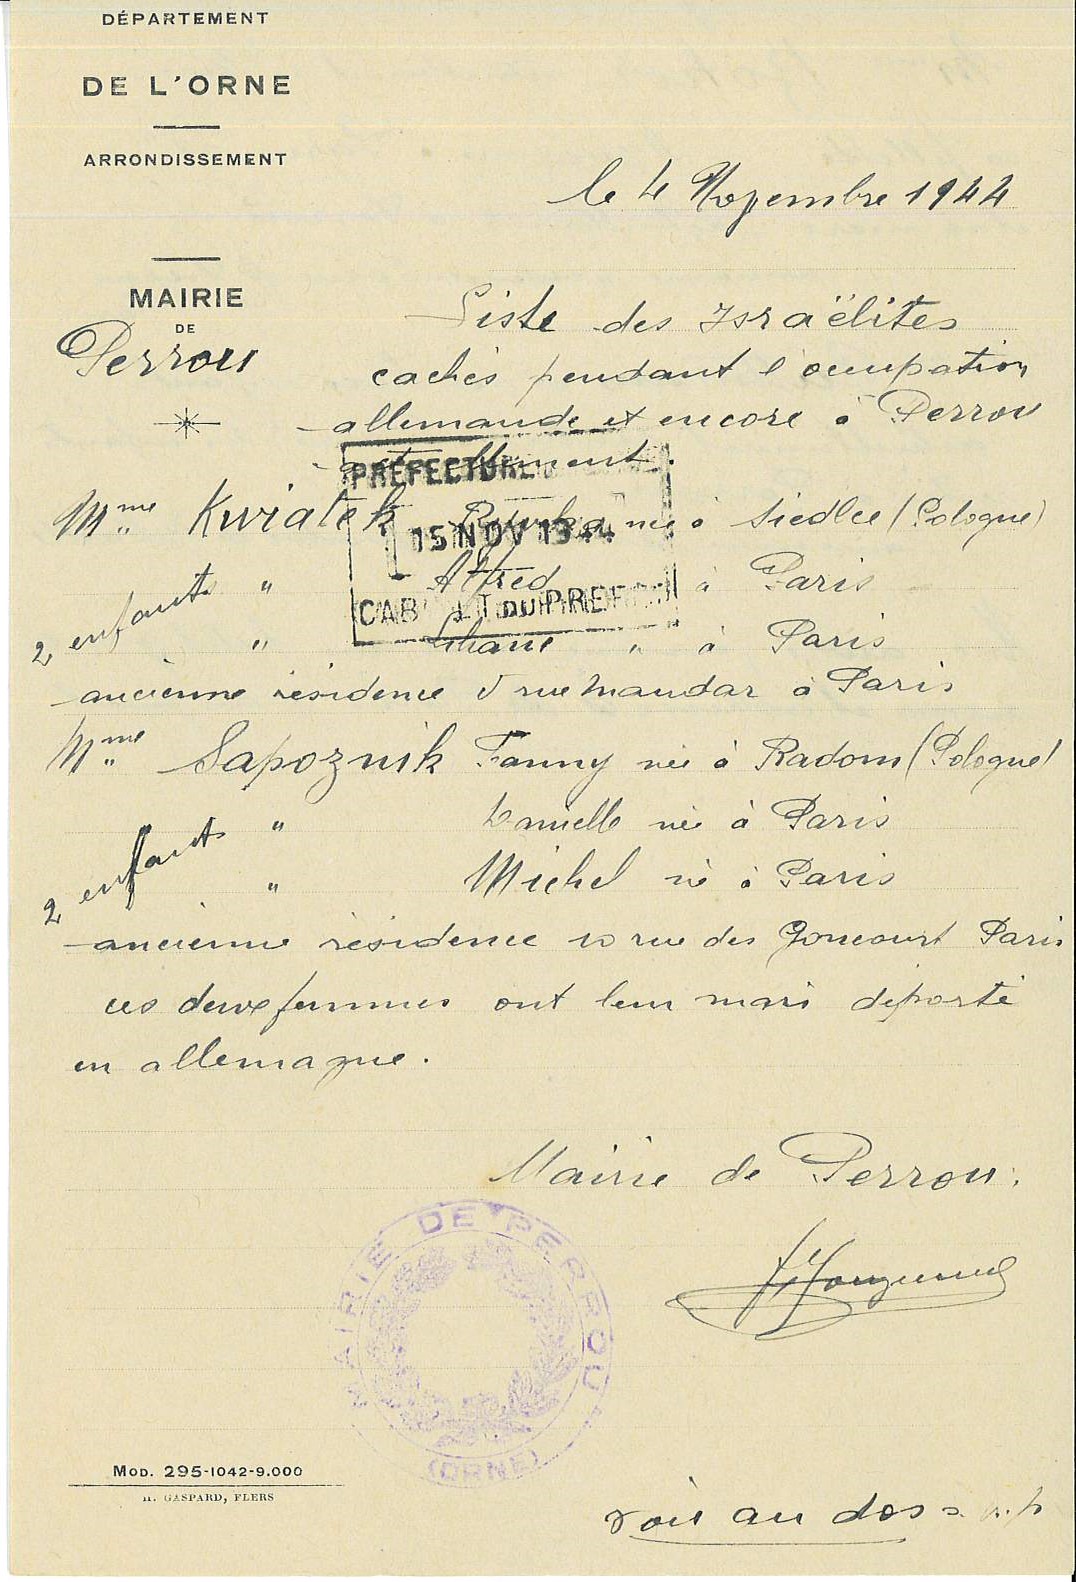 DÉPARTEMENT
DE L'ORNE
ARRONDISSEMENT
le 4 Novembre 1944
MAIRIE
DE
Perrou
Liste des Israëlites
cachés pendant l'occupation
allemande et encore à Perrou
actuellement.
PRÉFECTURE
15 NOV 1944
CABINET DU PREFET
Mme Kwiatek née à Siedlce (Pologne)
2 enfants " Alfred à Paris
" Liliane " à Paris
ancienne résidence 5 rue Mandar à Paris
Mme Sapoznik Fanny née à Radom (Pologne)
2 enfants " Danielle née à Paris
" Michel né à Paris
ancienne résidence 10 rue des Goncourt Paris
ces deux femmes ont leur mari déporté
en allemagne.
Mairie de Perrou.
MAIRIE DE PERROU
(ORNE)
MOD. 295-1042-9.000
H. GASPARD, FLERS
voir au dos